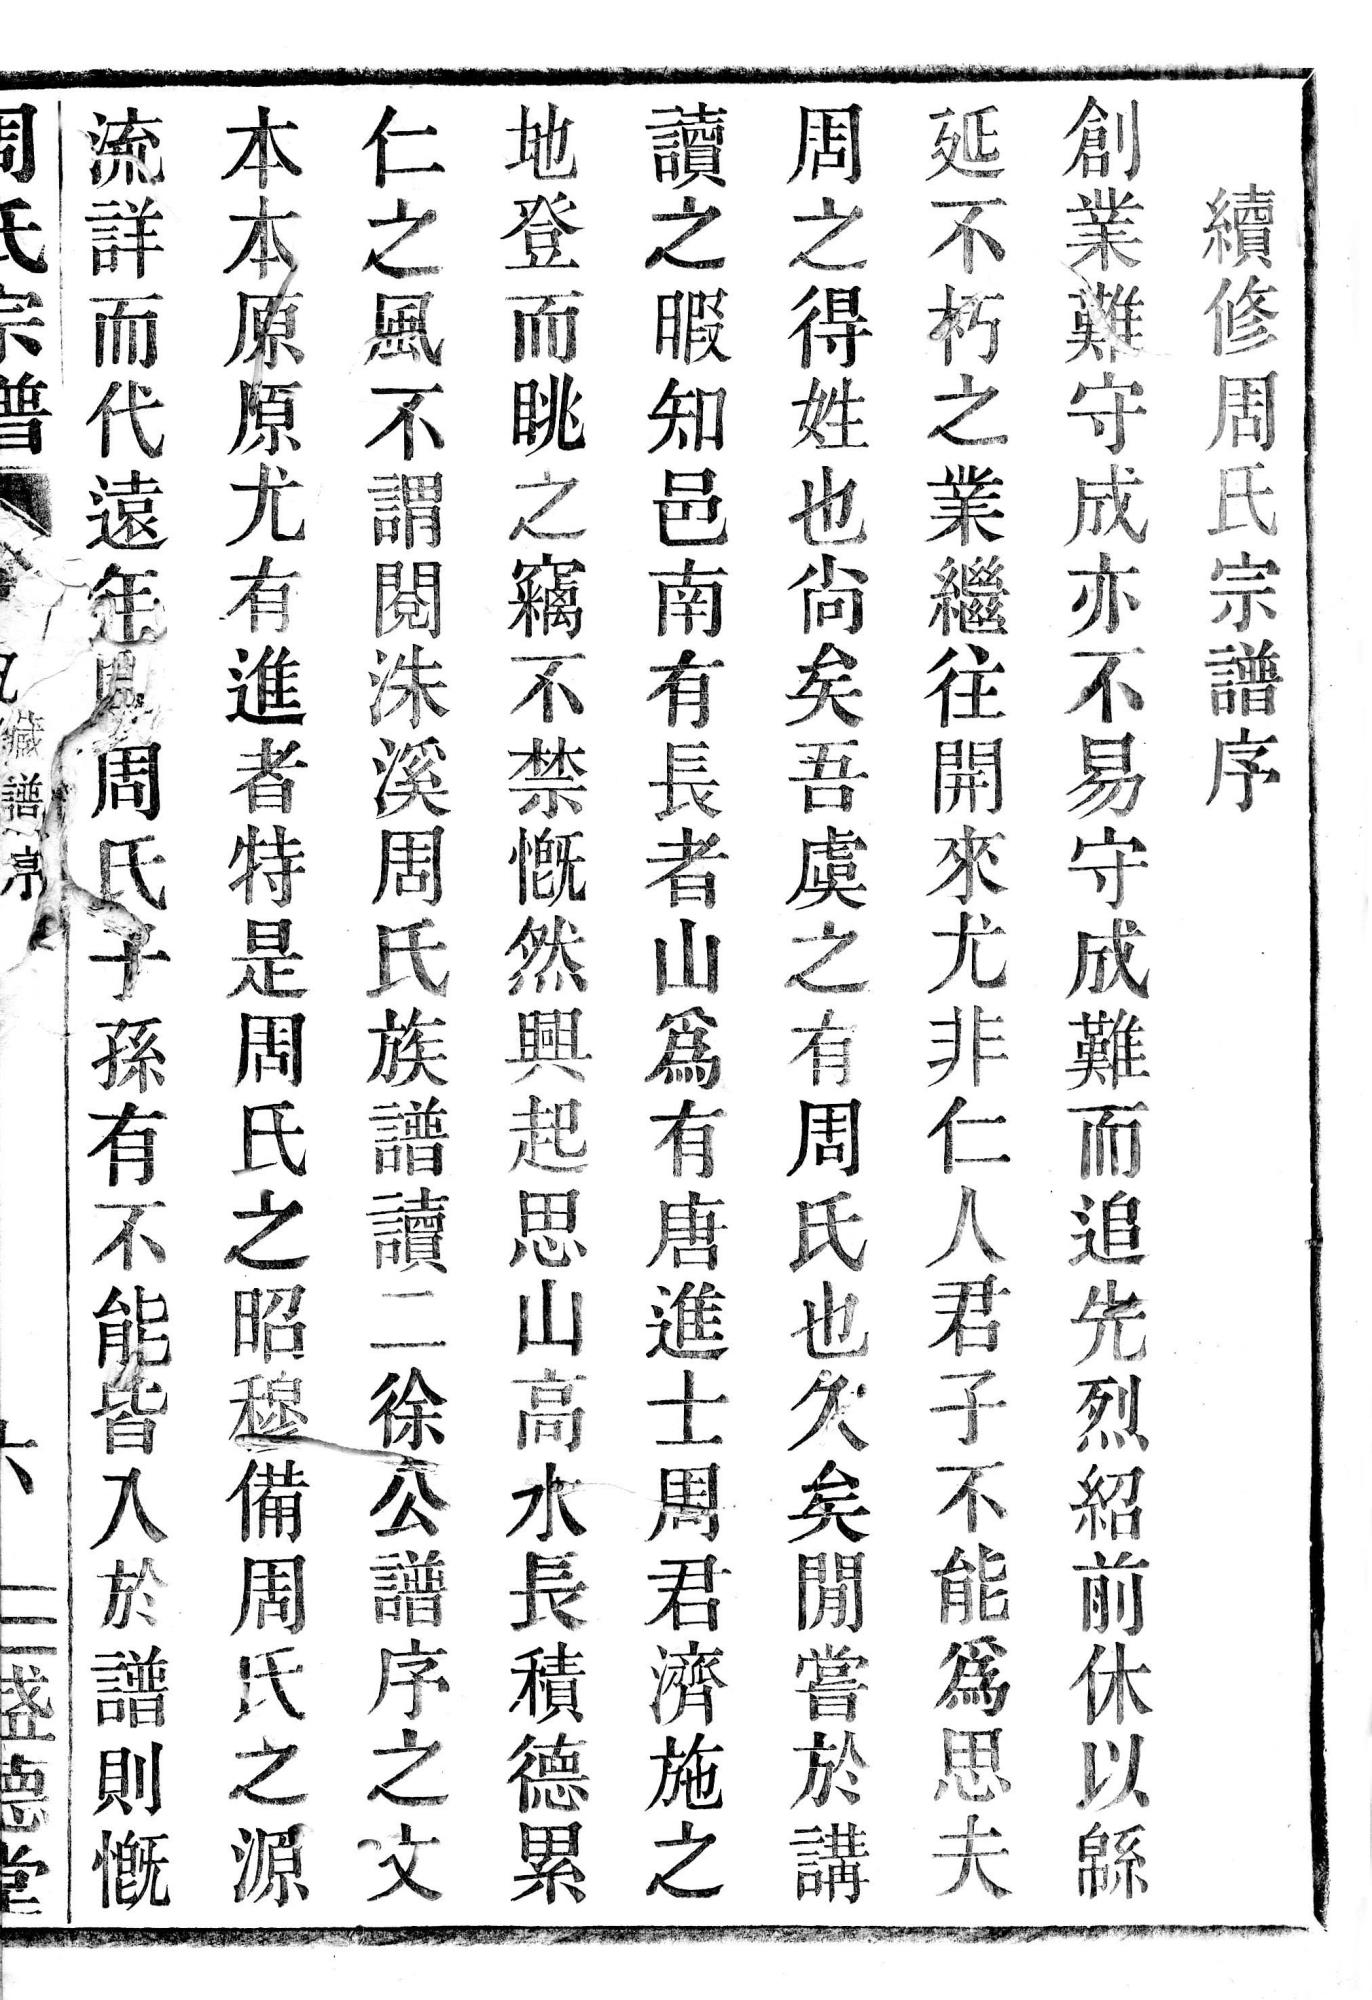 續修周氏宗譜序
創業難守成亦不易守成難而追先烈紹前休以緜
延不朽之業繼往開來尤非仁人君子不能爲思夫
周之得姓也尙矣吾虞之有周氏也久矣閒嘗於講
讀之暇知邑南有長者山爲有唐進士周君濟施之
地登而眺之竊不禁慨然興起思山高水長積德累
仁之風不謂閱洙溪周氏族譜讀二徐公譜序之文
本本原原尤有進者特是周氏之昭穆備周氏之源
流詳而代遠年周氏子孫有不能皆入於譜則慨
周氏宗譜 藏譜亭 六 盛德堂